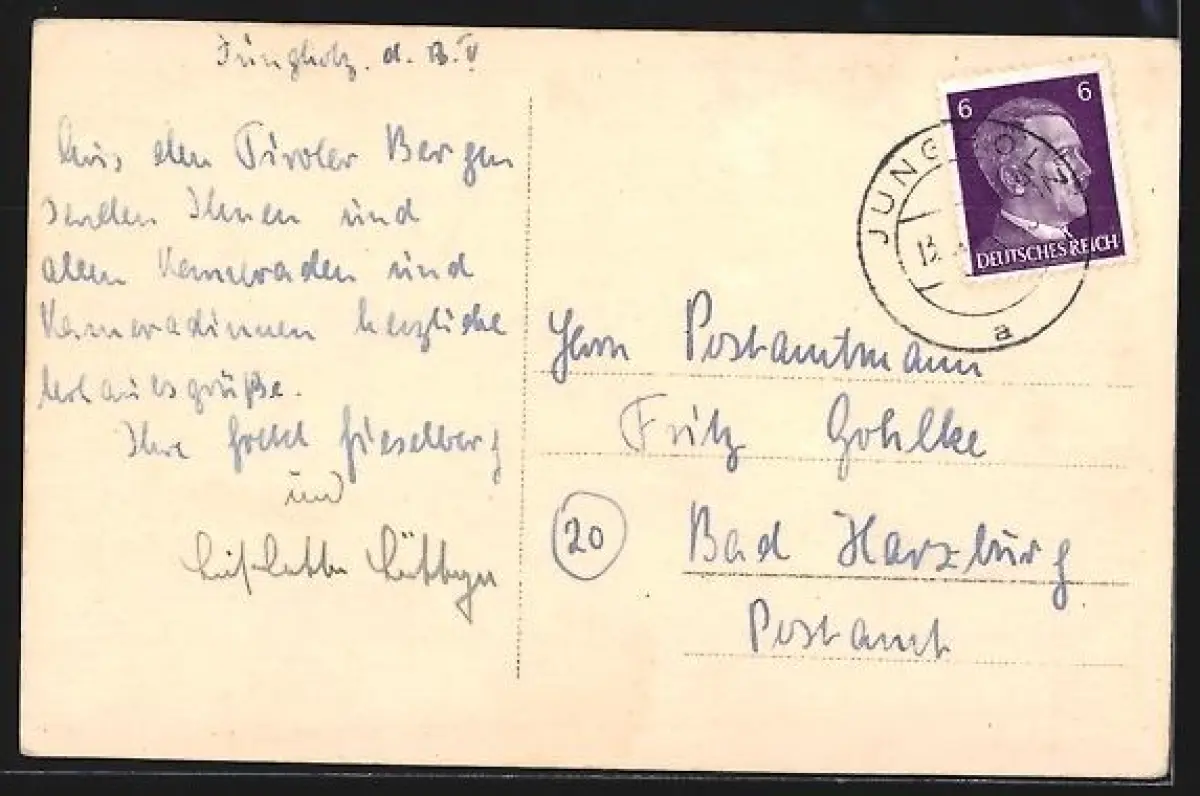 Jungholz, d. 13. V
Aus den Tiroler Bergen
senden Ihnen und
allen Kameraden und
Kameradinnen herzliche
Urlaubsgrüße.
Ihre Gretel Gieselberg
und
6 6
DEUTSCHES REICH
JUNGHOLZ
13.
a
Herrn Postamtmann
Fritz Gohlke
20 Bad Harzburg
Postamt